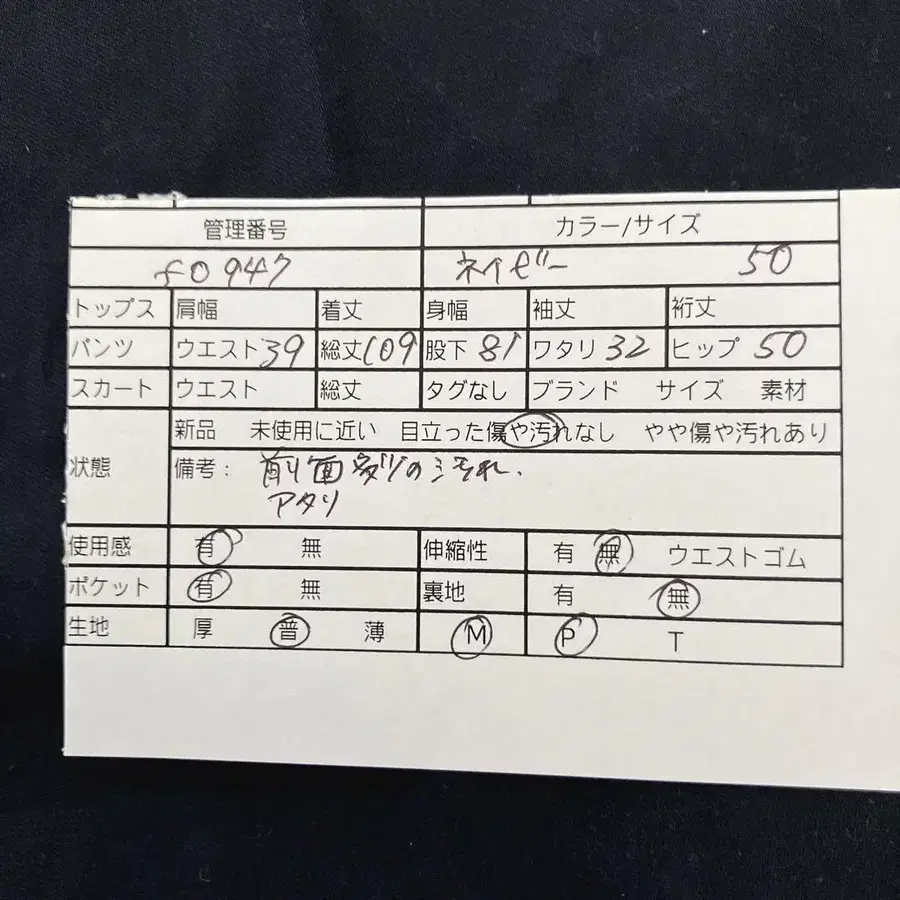 管理番号 カラー/サイズ
f0947 ネイビー 50
トップス 肩幅 着丈 身幅 袖丈 裄丈
パンツ ウエスト39 総丈109 股下81 ワタリ32 ヒップ50
スカート ウエスト 総丈 タグなし ブランド サイズ 素材
状態 新品 未使用に近い 目立った傷や汚れなし やや傷や汚れあり
備考: 前面 の汚れ.
アタリ
使用感 有 無 伸縮性 有 無 ウエストゴム
ポケット 有 無 裏地 有 無
生地 厚 普 薄 M P T